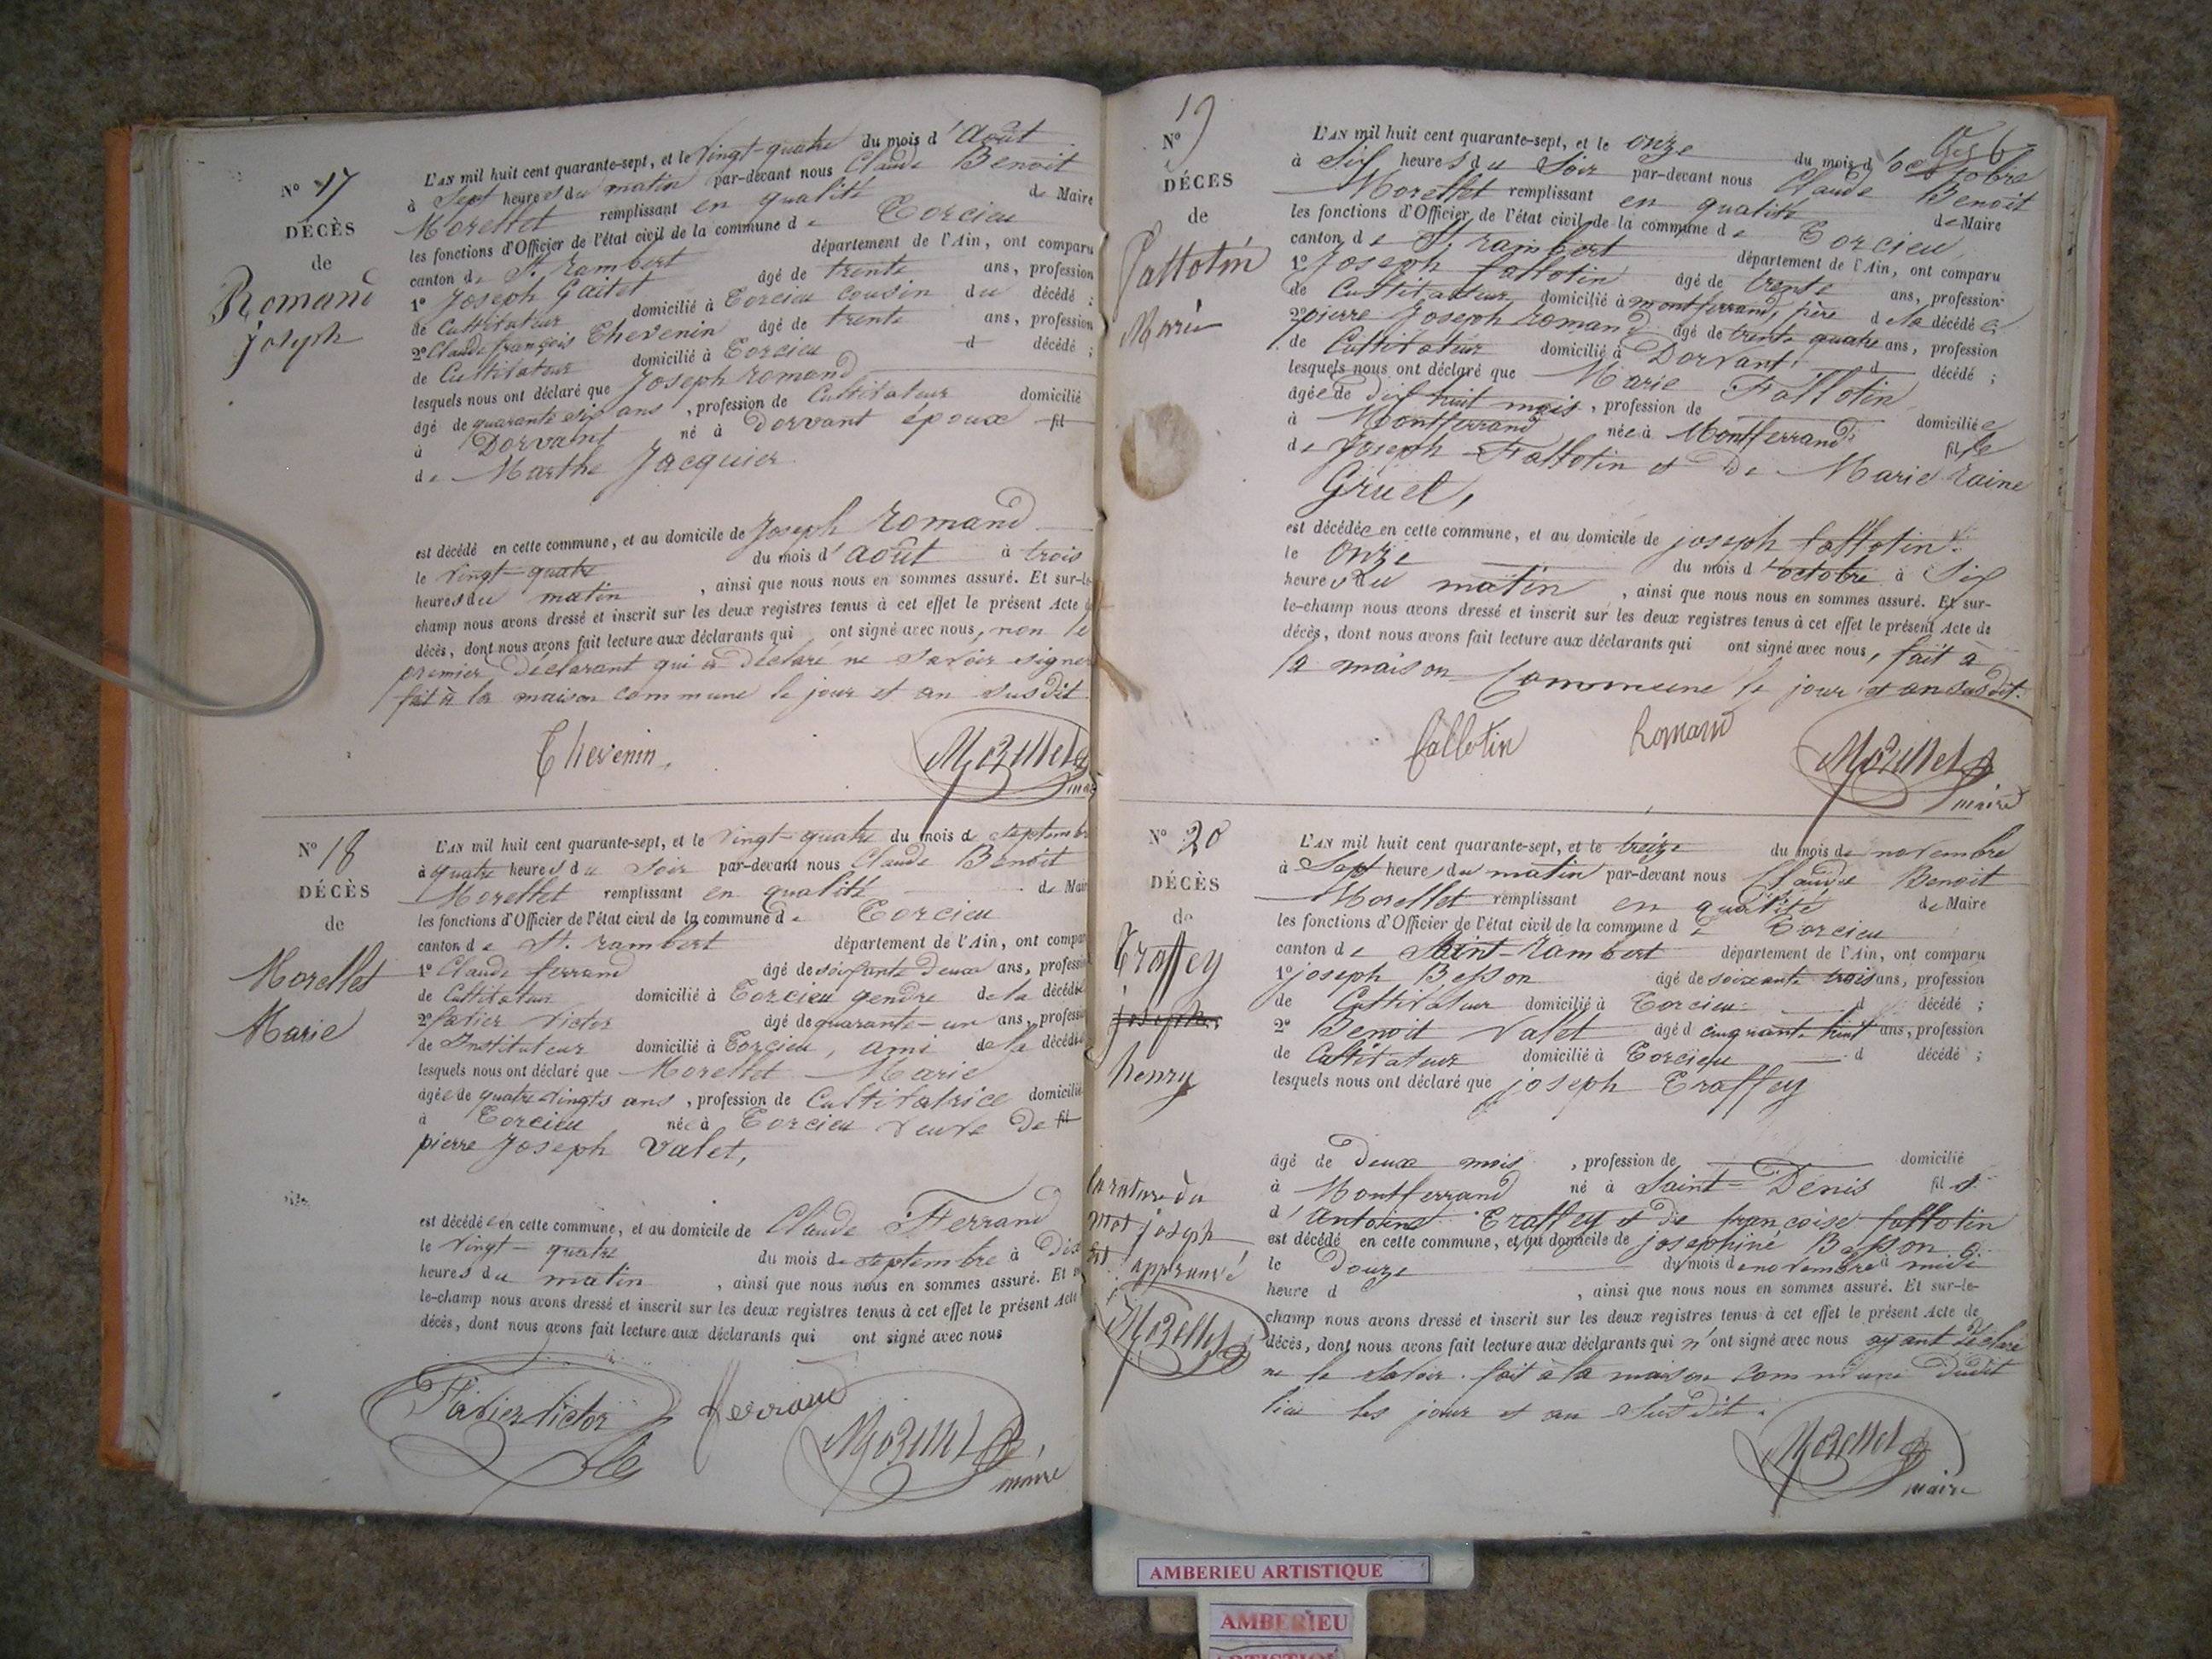 N° 17
DÉCÈS
de
Romand
joseph
L'AN mil huit cent quarante-sept, et le Vingt-quatre du mois d'Août
à Sept heures du matin par-devant nous Claude Benoit
Morellet remplissant en qualité de Maire
les fonctions d'Officier de l'état civil de la commune de Torcieu
canton de St. rambert département de l'Ain, ont comparu
1° Joseph Gaitet âgé de trente ans, profession
de Cultivateur domicilié à Torcieu cousin du décédé ;
2° Claude françois Chevenin âgé de trente ans, profession
de Cultivateur domicilié à Torcieu d décédé ;
lesquels nous ont déclaré que Joseph romand
âgé de quarante six ans, profession de Cultivateur domicilié
à Dorvant né à Dorvant époux fil
de Marthe Jacquier
est décédé en cette commune, et au domicile de Joseph romand
le Vingt-quatre du mois d'août à trois
heures du matin, ainsi que nous nous en sommes assuré. Et sur-le-
champ nous avons dressé et inscrit sur les deux registres tenus à cet effet le présent Acte
décès, dont nous avons fait lecture aux déclarants qui ont signé avec nous, non le
premier déclarant qui a déclaré ne savoir signer
fait à la maison commune le jour et an susdit
Thevenin
Morellet
maire
N° 18
DÉCÈS
de
Morellet
Marie
L'AN mil huit cent quarante-sept, et le Vingt-quatre du mois de septembre
à quatre heures du Soir par-devant nous Claude Benoit
Morellet remplissant en qualité de Maire
les fonctions d'Officier de l'état civil de la commune de Torcieu
canton de St. rambert département de l'Ain, ont comparu
1° Claude ferrand âgé de soixante deux ans, profession
de Cultivateur domicilié à Torcieu gendre de la décédée
2° favier Victor âgé de quarante-un ans, profession
de Instituteur domicilié à Torcieu, ami de la décédée
lesquels nous ont déclaré que Morellet Marie
âgée de quatre vingts ans, profession de Cultivatrice domicilié
à Torcieu née à Torcieu veuve de fil
pierre Joseph Valet,
est décédée en cette commune, et au domicile de Claude Ferrand
le Vingt-quatre du mois de septembre à Dix
heures du matin, ainsi que nous nous en sommes assuré. Et
le-champ nous avons dressé et inscrit sur les deux registres tenus à cet effet le présent Acte
décès, dont nous avons fait lecture aux déclarants qui ont signé avec nous
Favier Victor
ferrand
Morellet
maire
19
N°
DÉCÈS
de
fallotin
Marie
L'AN mil huit cent quarante-sept, et le onze du mois d'octobre
à Six heures du Soir par-devant nous Claude Benoit
Morellet remplissant en qualité de Maire
les fonctions d'Officier de l'état civil de la commune de Torcieu
canton de St. rambert département de l'Ain, ont comparu
1° Joseph fallotin âgé de trente ans, profession
de Cultivateur domicilié à montferrand, père de la décédée
2° pierre Joseph romand âgé de trente quatre ans, profession
de Cultivateur domicilié à Dorvant d décédé ;
lesquels nous ont déclaré que Marie Fallotin
âgée de dix huit mois, profession de domiciliée
à Montferrand née à Montferrand fille
de Joseph Fallotin et de Marie raine
Gruel,
est décédée en cette commune, et au domicile de joseph fallotin
le onze du mois d'octobre à Six
heures du matin, ainsi que nous nous en sommes assuré. Et sur-
le-champ nous avons dressé et inscrit sur les deux registres tenus à cet effet le présent Acte de
décès, dont nous avons fait lecture aux déclarants qui ont signé avec nous, fait à
la maison Commune le jour et an susdit.
fallotin
Romand
Morellet
maire
N° 20
DÉCÈS
de
Traffey
joseph
henry
la rature du
mot joseph
est approuvé
Morellet
L'AN mil huit cent quarante-sept, et le treize du mois de novembre
à Sept heures du matin par-devant nous Claude Benoit
Morellet remplissant en qualité de Maire
les fonctions d'Officier de l'état civil de la commune de Torcieu
canton de Saint-rambert département de l'Ain, ont comparu
1° joseph Besson âgé de soixante trois ans, profession
de Cultivateur domicilié à Torcieu d décédé ;
2° Benoit Valet âgé d cinquante huit ans, profession
de Cultivateur domicilié à Torcieu d décédé ;
lesquels nous ont déclaré que joseph Traffey
âgé de deux mois, profession de domicilié
à Montferrand né à Saint-Denis fils
d'Antoine Traffey et de françoise fallotin
est décédé en cette commune, et au domicile de josephine Besson
le Douze du mois de novembre à midi
heure d, ainsi que nous nous en sommes assuré. Et sur-le-
champ nous avons dressé et inscrit sur les deux registres tenus à cet effet le présent Acte de
décès, dont nous avons fait lecture aux déclarants qui n'ont signé avec nous ayant déclaré
ne le Savoir. fait à la maison commune dudit
lieu les jour et an Susdit.
Morellet
maire
AMBERIEU ARTISTIQUE
AMBERIEU
ARTISTIQUE